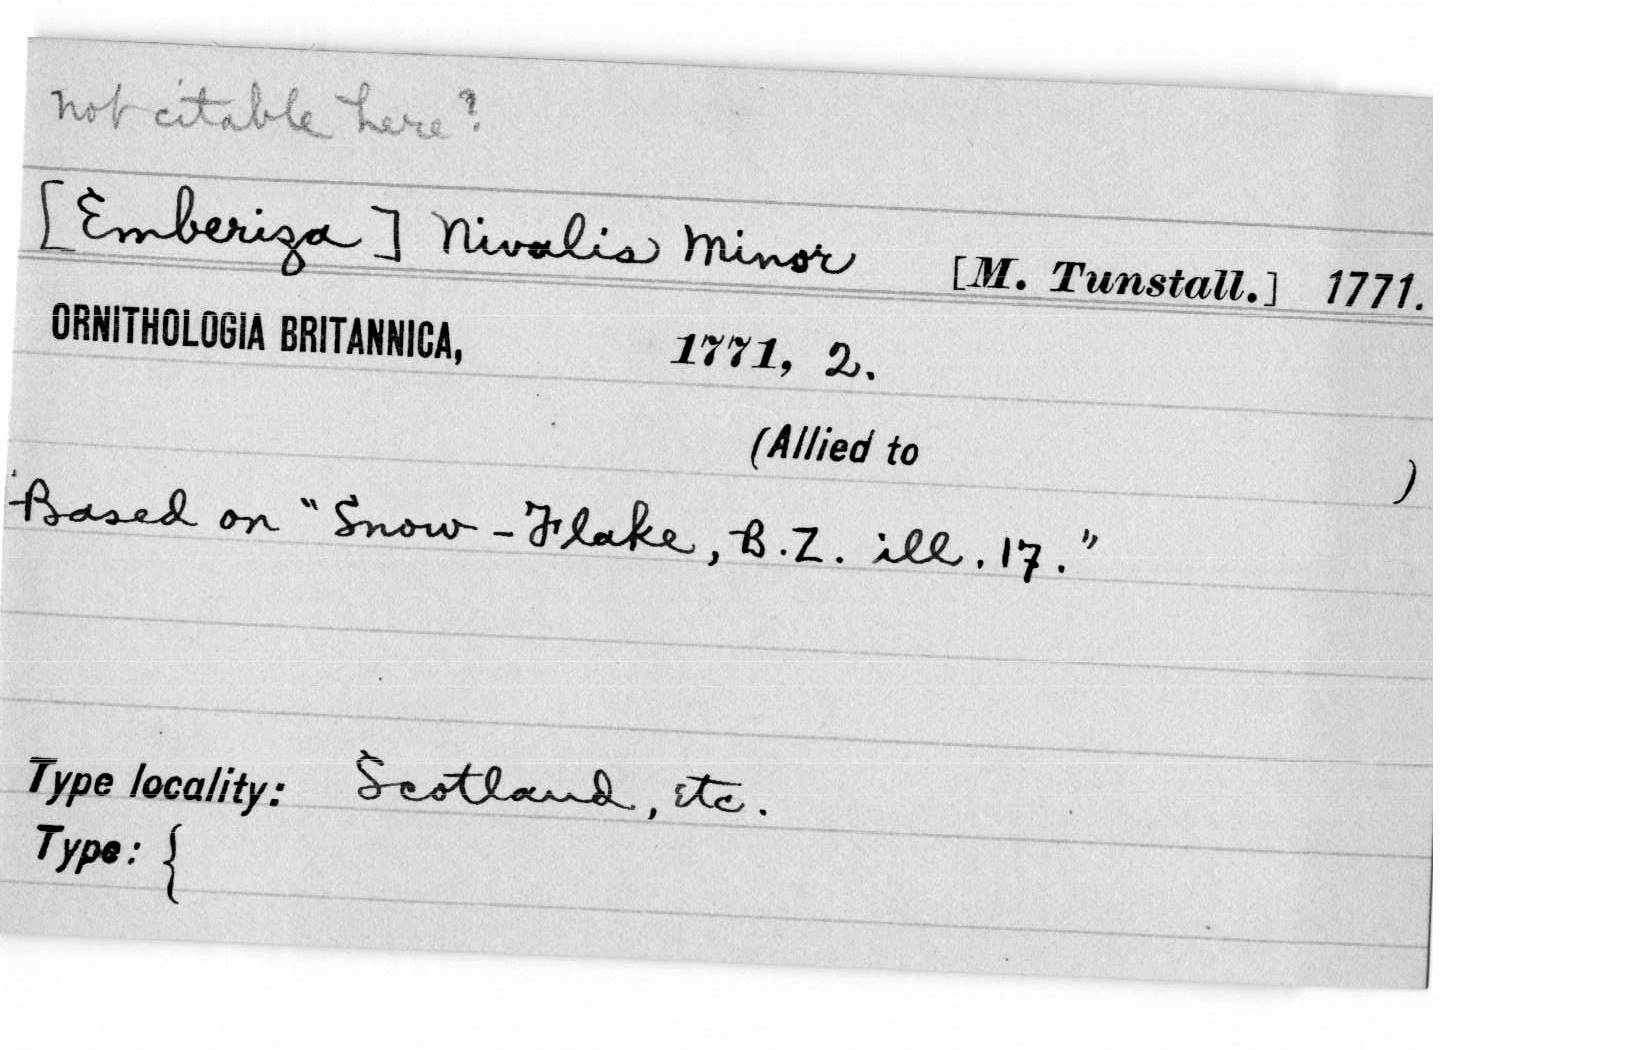 not citable here?
[Emberiza] Nivalis Minor [M. Tunstall.] 1771.
ORNITHOLOGIA BRITANNICA, 1771, 2.
(Allied to )
Based on "Snow-Flake, B.Z. ill. 17."
Type locality: Scotland, etc.
Type: {